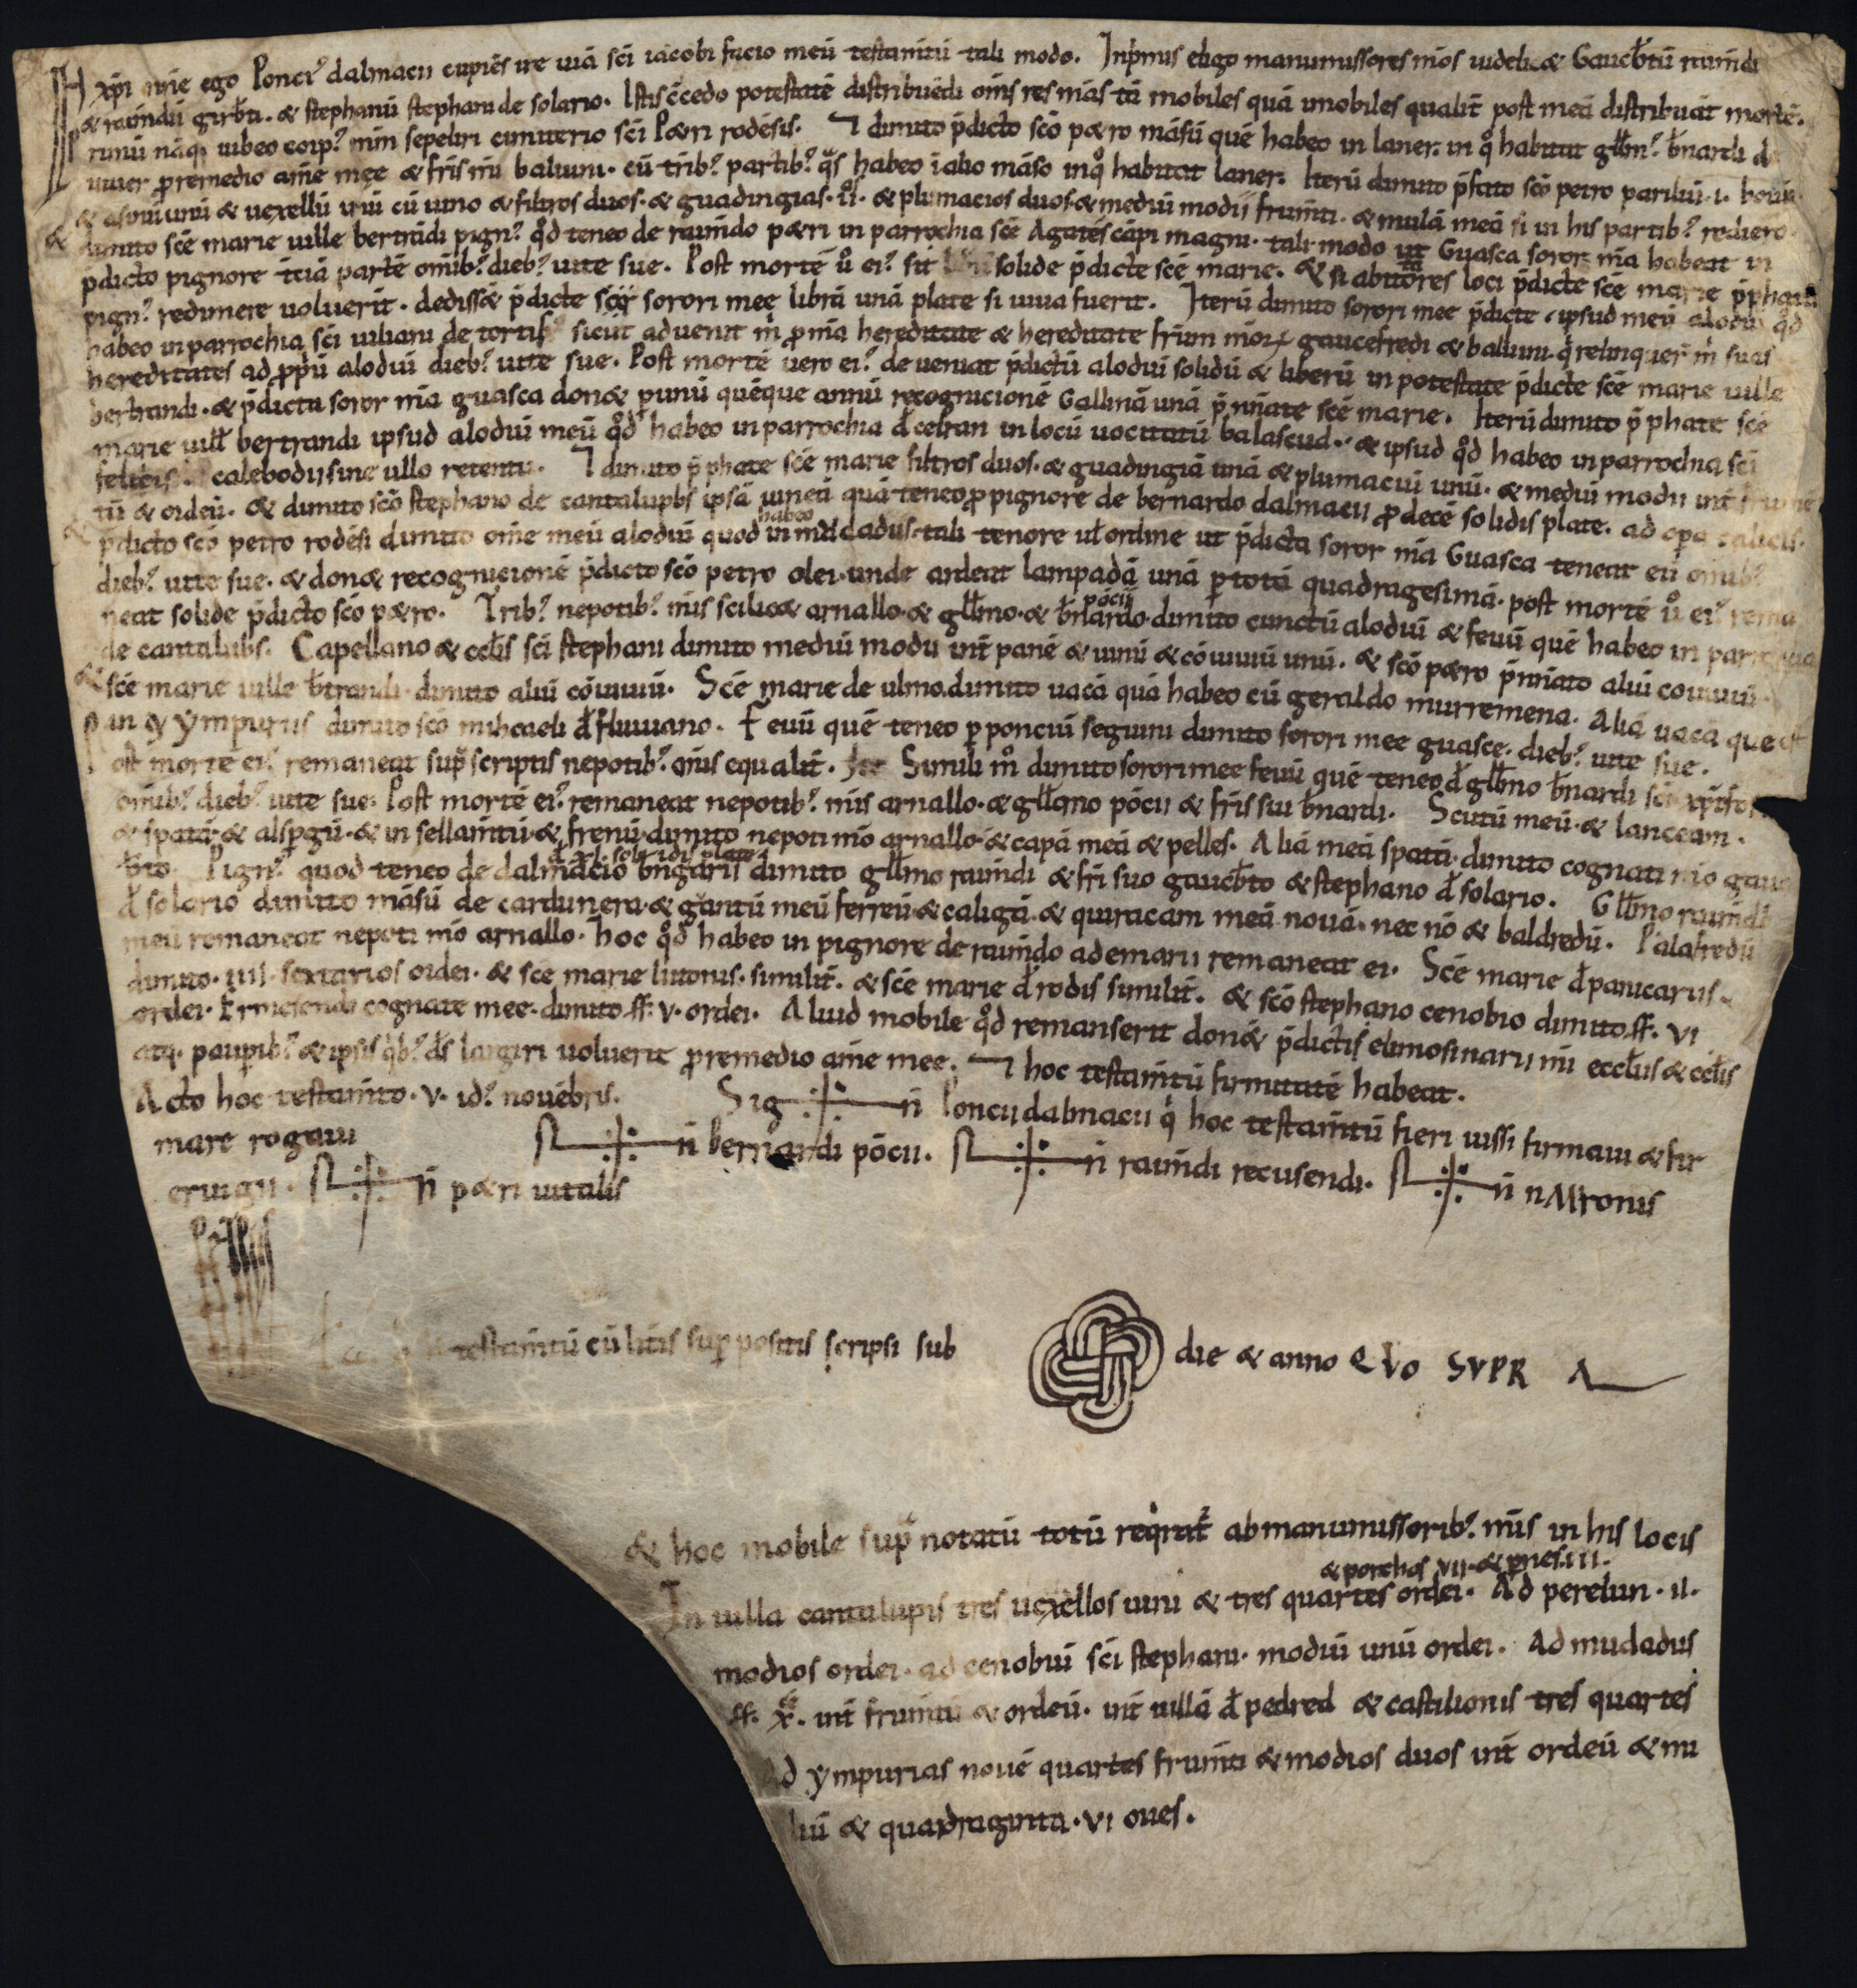 IN xp̄i nn̄e ego Ponci᾽ dalmacii cupiēs ire uiā sc̄i iacobi facio meū testam̄tū tali modo. Inp̄mis eligo manumissores m̄os uidelic& Gaucƀtū raim̄di
& raim̄dū girƀti. & stephanū stephani de solario. Istis c̄cedo potestatē distribuēdi om̄s res m̄as tā mobiles quā inmobiles qualit̄ post meā distribuāt mortē.
P rimū nāq; iubeo corp᾽ m̄m sepeliri cimiterio sc̄i P&ri rodēsis. ⁊ dimito p̄dicto sc̄o p&ro māsū quē habeo in laner. in q̊ habitat gllm̄᾽ ƀnardi d
uiuer p̱ remedio am̄e mee & fr̄is m̄i baluini. cū trib᾽ partib᾽ q̄s habeo ī alio māso inq̊ habitat laner. Iterū dimito p̄fato sc̄o petro pariliū .i. boūū
& asinū unū & uexellū unū cū uino & filtros duos. & guadingias .ii. & plumacios duos. & mediū modii frum̄ti. & mulā meā si in his partib᾽ rediero.
& dimito sc̄e marie uille bertrādi pign᾽ q̊d teneo de raim̄do p&ri in parrochia sc̄e Agatēs cāpi magni. tali modo ut Guasca soror m̄a habeat in
p̄dicto pignore t̄ciā partē om̄ib᾽ dieb᾽ uite sue. Post mortē ů ei᾽ sit solide p̄dicte sc̄e marie. & si abitōres loci p̄dicte sc̄e marie p̄phati
pign᾽ redimere uoluerit. dediss& p̄dicte sorori mee librā unā plate si uiua fuerit. Iterū dimito sorori mee p̄dicte ipsud meū alodiū q̊d
habeo in parrochia sc̄i iuliani de tortis sicut aduenit m̄ p̱ m̄a hereditate & hereditate fr̄um m̄oꝝ gaucefredi & baluini. q̄ relinquer̄ m̄ suas
hereditates ad p̱p̄ū alodiū dieb᾽ uite sue. Post mortē uero ei᾽ de ueniat p̄dictū alodiū solidū & liberū in potestate p̄dicte sc̄e marie uille
bertrandi. & p̄dicta soror m̄a guasca don& p̱ unū quēque annū recognicionē Gallinā unā p̄nn̄ate sc̄e marie. Iterū dimito p̄phate sc̄e
marie uill̄ bertrandi ipsud alodiū meū q̊d habeo in parrochia đ celran in locū uocitatū balascud. & ipsud q̊d habeo in parrochia sc̄i
felicis calebodii sine ullo retentu. ⁊ dimito p̄phate sc̄e marie filtros duos. & guadingiā unā & plumaciū unū. & mediū modii int̄ frum̄
tū & ordeū. & dimito sc̄o stephano de cantalupis ipsā uineā quā teneo p̱ pignore de bernardo dalmacii p̱ decē solidis plate. ad opa calicis.
& p̄dicto sc̄o petro rodēsi dimito om̄e meū alodiū quod habeo in mudadus. tali tenore uł ordine ut p̄dicta soror m̄a Guasca teneat eū om̄ib᾽
dieb᾽ uite sue. & don& recognicionē p̄dicto sc̄o petro olei. unde ardeat lampadā unā p̱ totā quadragesimā. post mortē ů ei᾽ rema
neat solide p̄dicto sc̄o p&ro. Trib᾽ nepotib᾽ m̄is scilic& arnallo. & gllm̄o. & ƀnardo pōcii. dimito cunctū alodiū & feuū quē habeo in parrochia
de cantalubs. Capellano & ccl̄is sc̄i stephani dimito mediū modii int̄ panē & uinū & cōuiuiū unū. & sc̄o p&ro p̄nn̄ato aliū cōuiuiū.
& sc̄e marie uille ƀtrandi. dimito aliū cōuiuiū. Sc̄e marie de ulmo. dimito uacā quā habeo cū geraldo murremena. Aliā uacā que est
in ympuriis dimito sc̄o mihcaeli đ fluuiano. Feuū quē teneo p̱ ponciū seguini dimito sorori mee guasce. dieb᾽ uite sue.
P ost mortē ei᾽ remaneat sup̄ scriptis nepotib᾽ m̄is equalit̄. Simili m̊ dimito sorori mee feuū quē teneo đ gllm̄o ƀnardi sc̄i xp̄tofori
om̄ib᾽ dieb᾽ uite sue. Post mortē ei᾽ remaneat nepotib᾽ m̄is arnallo. & gllm̄o pōcii & fr̄is sui ƀnardi. Scutū meū. & lanceam.
& spatā. & alsp̱gū. & in sellam̄tū. & frenū. dimito nepoti m̄o arnallo. & capā meā & pelles. Aliā meā spatā. dimito cognati m̄o gauc
ƀto. Pign᾽ quod teneo de dalmacio ƀngarii đ xl. solidis plate dimito gllm̄o raim̄di & fr̄i suo gaucƀto & stephano đ solario. Gllm̄o raim̄di
đ solario dimito māsū de cardunera. & gātū meū ferreū. & caligā. & quiracam meā nouā. nec nō & baldredū. Palafredū
meū remaneat nepoti m̄o arnallo. hoc q̊d habeo in pignore de raim̄do ademarii remaneat ei. Sc̄e marie đ panicariis
dimito. iiii. sextarios ordei. & sc̄e marie litonis. similit̄. & sc̄e marie đ rodis similit̄. & sc̄o stephano cenobio dimito. ff. vi
ordei. Ermesendi cognate mee. dimito ff. v. ordei. Aliud mobile q̊d remanserit don& p̄dictis elimosinarii m̄i eccl̄iis & ccl̄is
atq. paup̱ib᾽ & ipsis q̄b᾽ đs largiri uoluerit p̱ remedio am̄e mee. ⁊ hoc testam̄tū firmitatē habeat.
Acto hoc testam̄to. v. id᾽ nouēbris. Sig n̄ Poncii dalmacii q̄ hoc testam̄tū fieri iussi firmaui & fir
mare rogaui n̄ bernardi pōcii. n̄ raim̄di recusendi. n̄ nMronis
eruigii. n̄ p&ri uitalis
testam̄tū cū lit̄is sup̱ positis scripsi sub die & anno QVO SVPR A
& hoc mobile sup̄ notatū totū req̄rat̄ ab manumissorib᾽ m̄is in his locis
In uilla cantulupis tres uexellos uini & tres quartes ordei. & porchos vii. & p̱nes. iii. Ad perelun. ii.
modios ordei. ad cenobiū sc̄i stephani. modiū unū ordei. Ad mudadus
ff. x. int̄ frum̄tū & ordeū. int̄ uillā đ pedred & castilionis tres quartes
Ad ympurias nouē quartes frum̄ti & modios duos int̄ ordeū & mi
liū & quadraginta. vi oues.